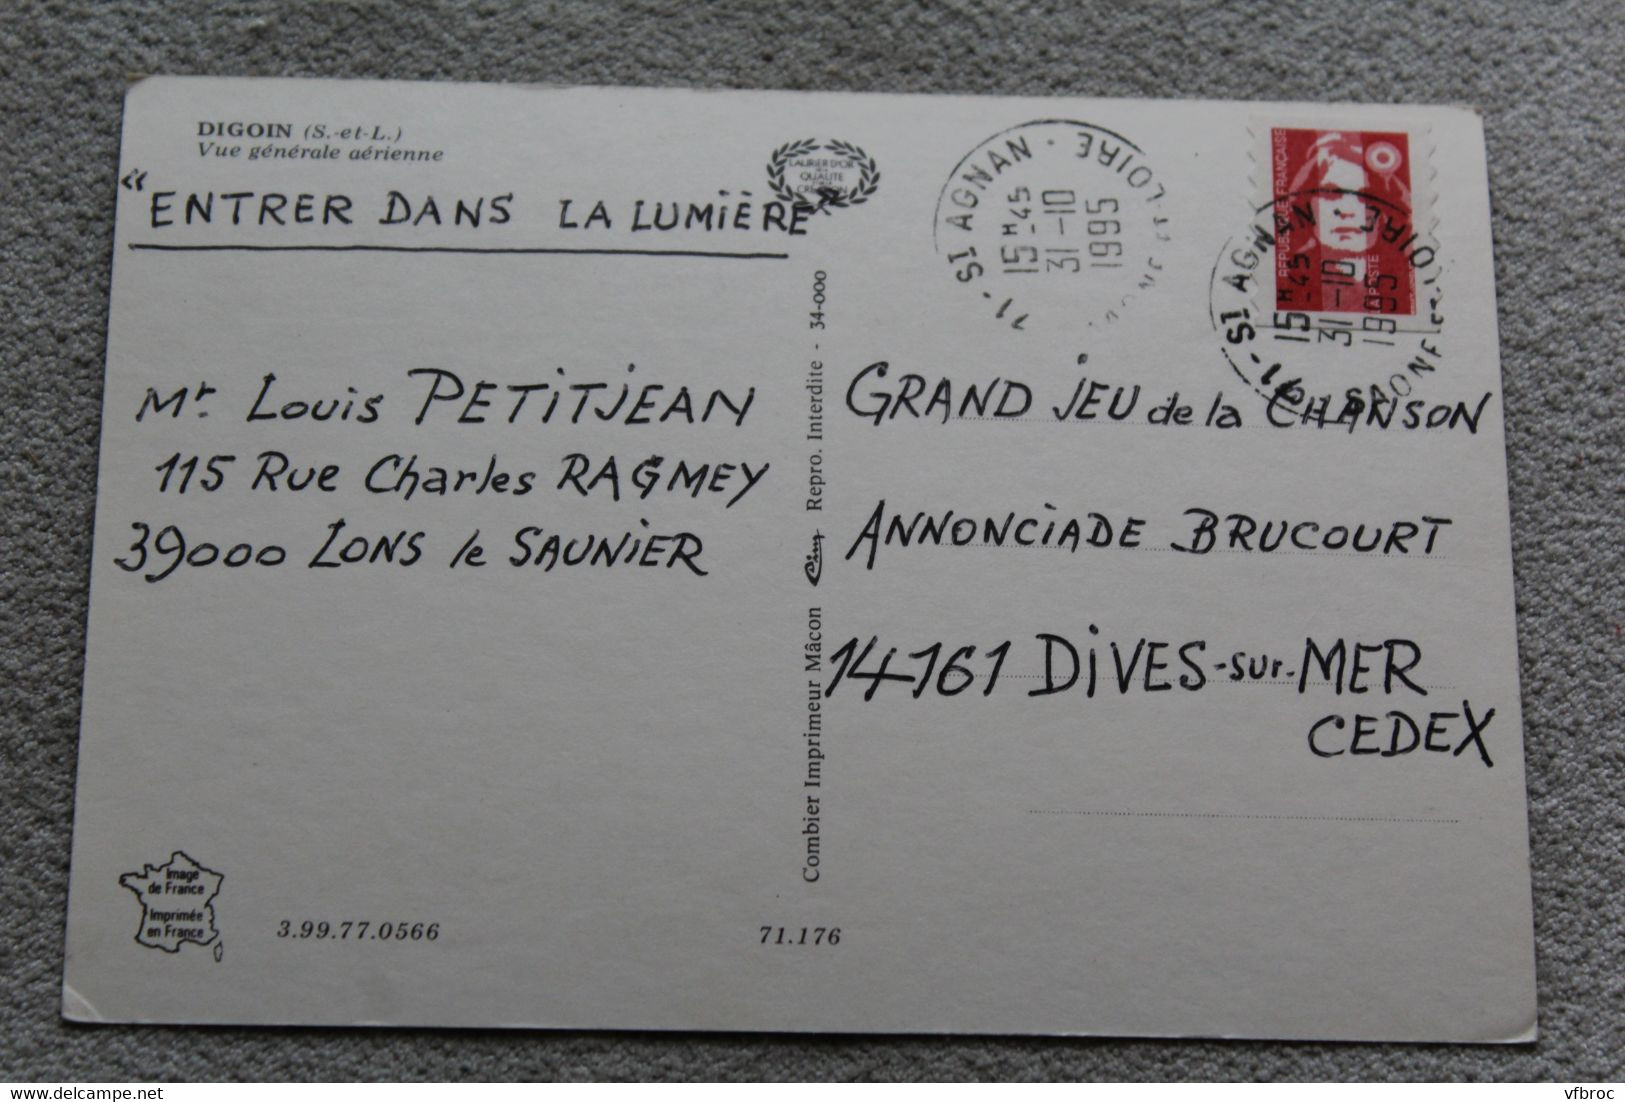 DIGOIN (S.-et-L.)
Vue générale aérienne
"ENTRER DANS LA LUMiËRE"
Mr. Louis PETiTJEAN
115 Rue Charles RAGMEY
39000 LONS le SAUNiER
Image
de France
Imprimée
en France
3.99.77.0566
71.176
Combier Imprimeur Mâcon Cim Repro. Interdite - 34-000
LAURIER D'OR
QUALITE
71 - St AGNAN · SAONE ET LOIRE
15H-45
31-10
1995
REPUBLIQUE FRANÇAISE
LA POSTE
71 - St AGNAN SAONE ET LOIRE
15H-45
31-10
1995
GRAND JEU de la CHANSON
ANNONCiADE BRUCOURT
14161 DiVES-sur-MER
CEDEX
www.delcampe.net
vfbroc